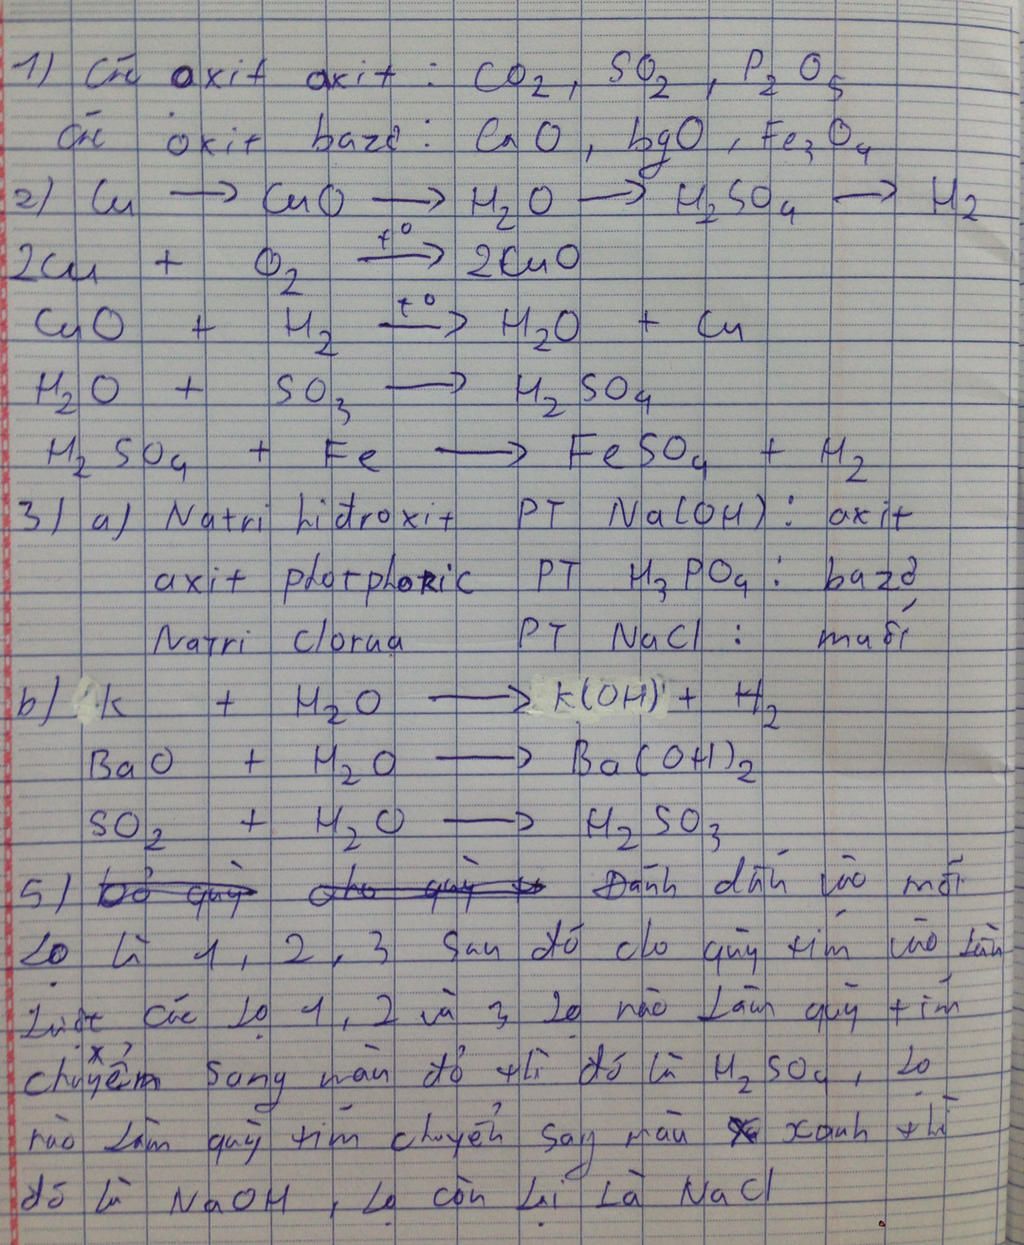 1) Các oxit axit : CO2, SO2, P2O5
Các oxit bazơ : CaO, HgO, Fe3O4
2) Cu → CuO → H2O → H2SO4 → H2
2Cu + O2 t° → 2CuO
CuO + H2 t° → H2O + Cu
H2O + SO3 → H2SO4
H2SO4 + Fe → FeSO4 + H2
3) a) Natri hiđroxit PT Na(OH) : axit
axit photphoric PT H3PO4 : bazơ
Natri Clorua PT NaCl : muối
b) K + H2O → K(OH) + H2
BaO + H2O → Ba(OH)2
SO2 + H2O → H2SO3
5) Đánh dấu vào mỗi
Lọ là 1, 2, 3 Sau đó cho quỳ tím vào Lần
Lượt các Lọ 1, 2 và 3, Lọ nào Làm quỳ tím
chuyển sang màu đỏ thì đó là H2SO4, Lọ
nào Làm quỳ tím chuyển sag màu xanh thì
đó là NaOH, Lọ còn Lại Là NaCl